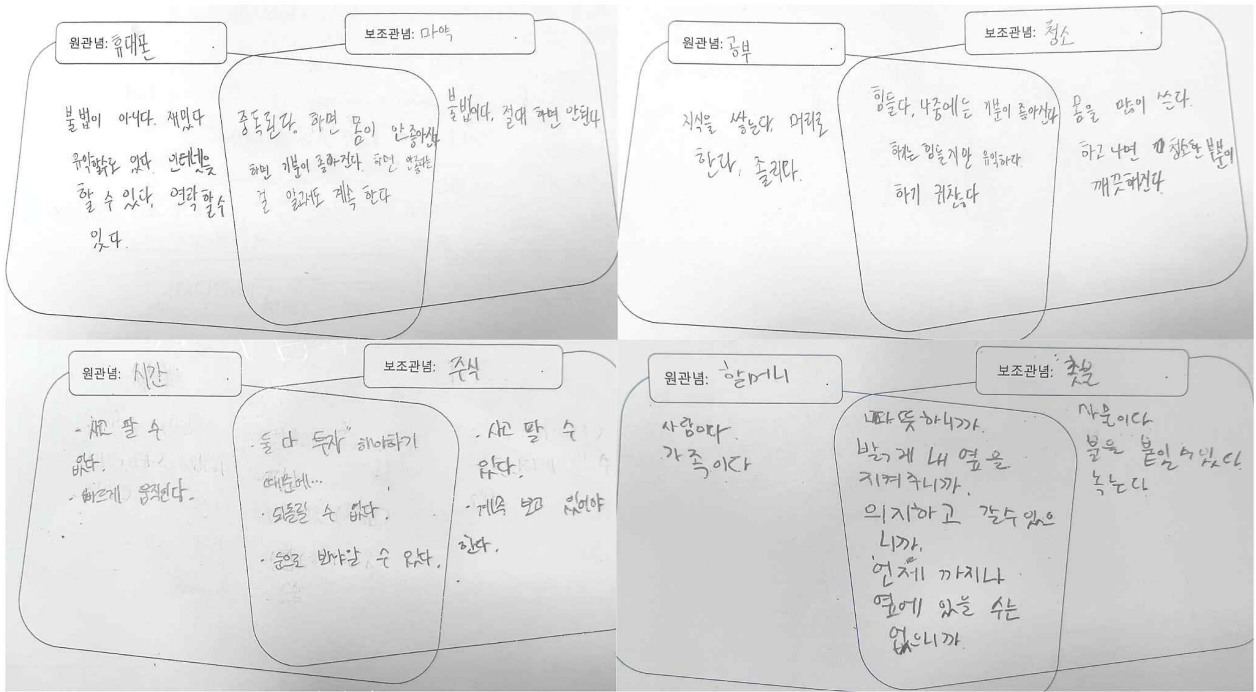 원관념: 휴대폰
보조관념: 마약
불법이 아니다. 재밌다
유익할수도 있다. 인터넷을
할 수 있다, 연락할수
있다.
중독된다, 하면 몸이 안좋아진다
하면 기분이 좋아진다. 하면 안좋다는
걸 알고서도 계속 한다
불법이다, 절대 하면 안된다
원관념: 공부
보조관념: 청소
지식을 쌓는다, 머리로
한다, 졸리다.
힘들다, 나중에는 기분이 좋아진다
하기는 힘들지만 유익하다
하기 귀찮다
몸을 많이 쓴다.
하고 나면 청소한 부분이
깨끗해진다
원관념: 시간
보조관념: 주식
- 사고 팔 수
없다.
- 빠르게 움직인다.
· 둘 다 투자 해야하기
때문에...
· 되돌릴 수 없다.
· 눈으로 봐야알 수 있다.
· 사고 팔 수
있다.
· 계속 보고 있어야
한다.
원관념: 할머니
보조관념: 촛불
사람이다.
가족이다
따뜻하니까.
밝게 내 옆을
지켜주니까.
의지하고 갈수있으
니까.
언제 까지나
옆에 있을 수는
없으니까
사물이다.
불을 붙일 수있다.
녹는다